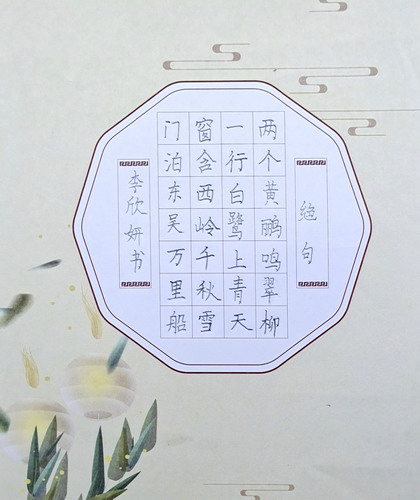 绝句
两个黄鹂鸣翠柳
一行白鹭上青天
窗含西岭千秋雪
门泊东吴万里船
李欣妍书